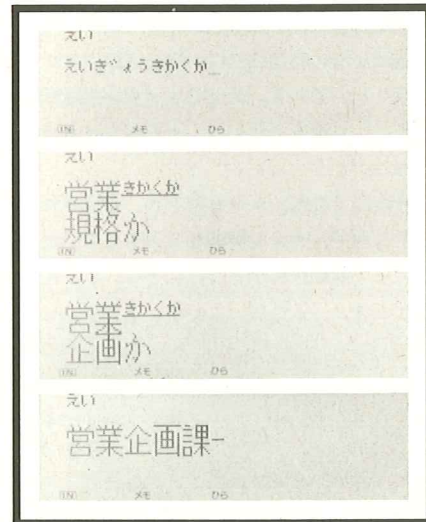 えい
えいぎょうきかくか_
メモ ひら
えい
営業きかくか
規格か
メモ ひら
えい
営業きかくか
企画か
メモ ひら
えい
営業企画課-
メモ ひら